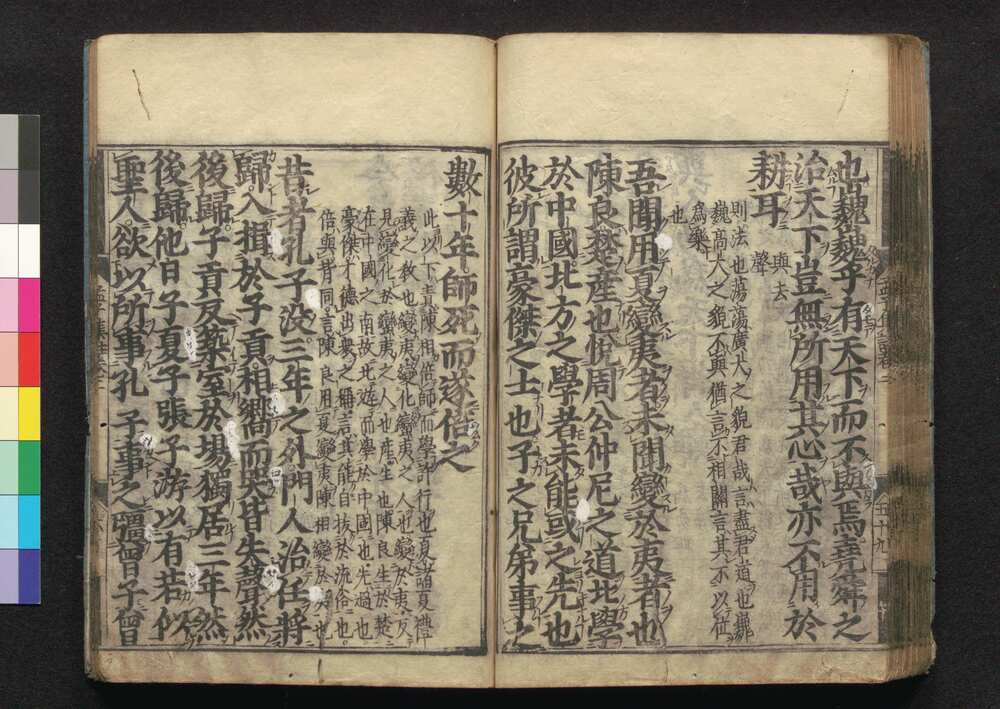 也巍巍乎有天下而不與焉堯舜之
治天下豈無所用其心哉亦不用於
耕耳
與去
聲
則法也蕩蕩廣大之貌君哉言盡君道也巍
巍高大之貌不與猶言不相關言其不以位
為樂
也
吾聞用夏變夷者未聞變於夷者也
陳良楚産也悦周公仲尼之道北學
於中國北方之學者未能或之先也
彼所謂豪傑之士也子之兄弟事之
數十年師死而遂倍之
此以下責陳相倍師而學許行也夏諸夏禮
義之教也變夷變化蠻夷之人也變於夷反
見變化於蠻夷之人也産生也陳良生於楚
在中國之南故北遊而學於中國也先過也
豪傑才德出衆之稱言其能自拔於流俗也
倍與背同言陳良用夏變夷陳相變於夷也
昔者孔子没三年之外門人治任將
歸入揖於子貢相嚮而哭皆失聲然
後歸子貢反築室於場獨居三年然
後歸他日子夏子張子游以有若似
聖人欲以所事孔子事之彊曾子曾
五十九